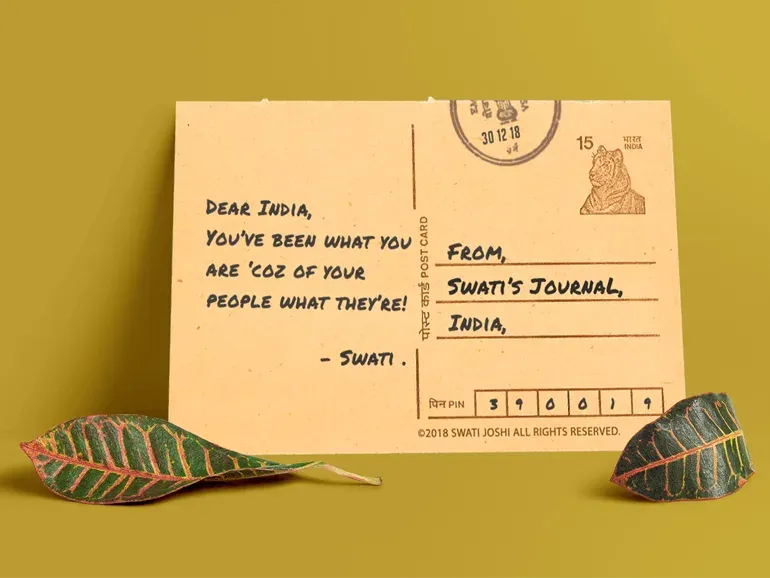 DEAR INDIA,
YOU'VE BEEN WHAT YOU
ARE 'COZ OF YOUR
PEOPLE WHAT THEY'RE!
- SWATI .
पोस्ट कार्ड POST CARD
30 12 18
15 भारत
INDIA
FROM,
SWATI'S JOURNAL,
INDIA,
पिन PIN 3 9 0 0 1 9
©2018 SWATI JOSHI ALL RIGHTS RESERVED.